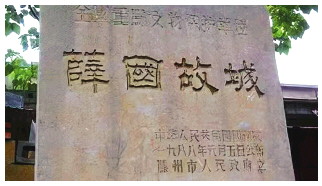 全国重点文物保护单位
薛國故城
中华人民共和国国务院
一九八八年元月五日公佈
滕州市人民政府立